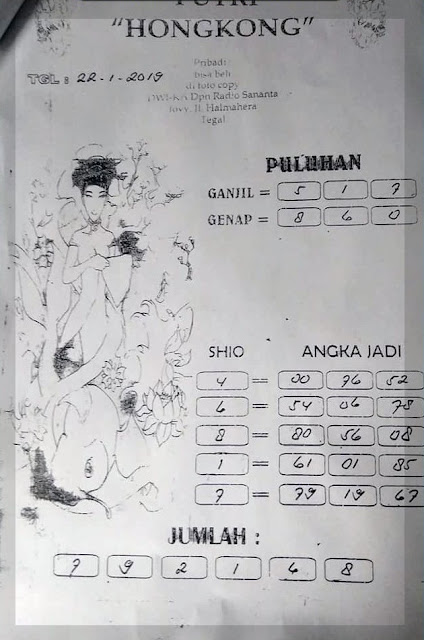 PUTRI
"HONGKONG"
TGL : 22-1-2019
Pribadi
bisa beli
di foto copy
Dpn Radio Sananta
Jl. Halmahera
Tegal
PULUHAN
GANJIL = 5 1 7
GENAP = 8 6 0
SHIO ANGKA JADI
4 = 00 76 52
6 = 54 06 78
8 = 80 56 08
1 = 61 01 85
7 = 79 19 67
JUMLAH :
7 9 2 1 4 8